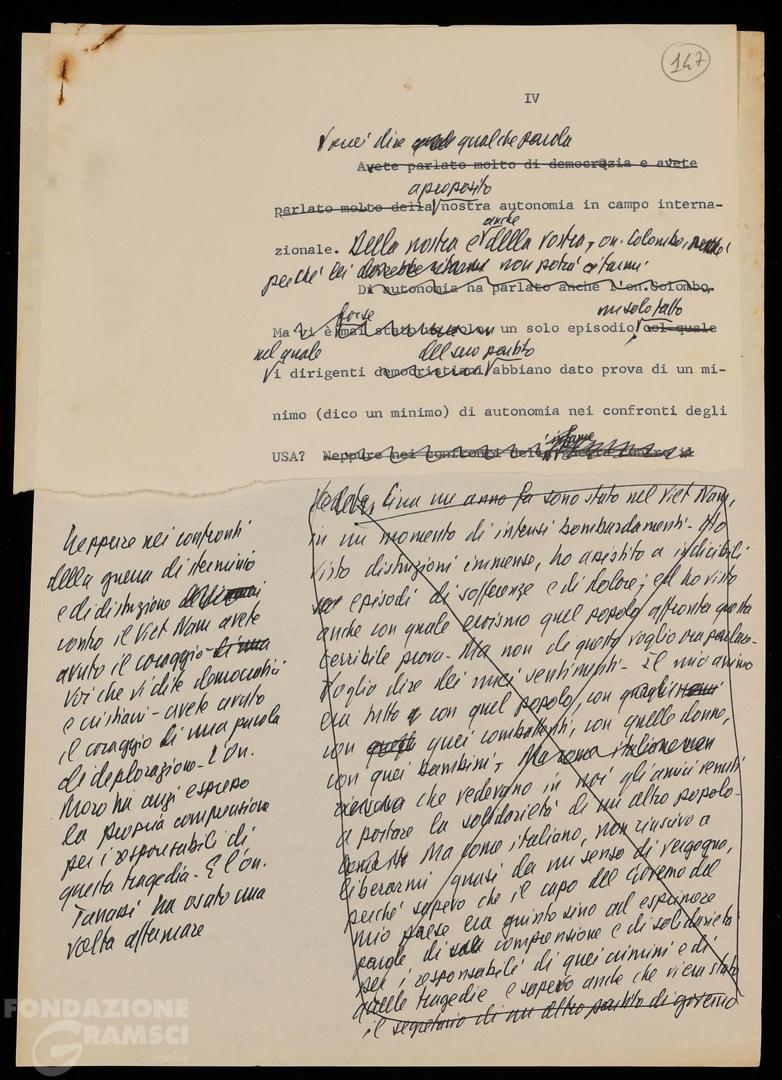 147
IV
Vorrei dire qualche parola
Avete parlato molto di democrazia e avete
a proposito
parlato molto della nostra autonomia in campo interna-
anche
zionale. Della nostra e della vostra, on. Colombo,
perché lei dovrebbe non potrà citarmi
Di autonomia ha parlato anche l'on. Colombo.
forse un solo fatto
Ma vi è mai stato un solo episodio col quale
nel quale del suo partito
i dirigenti democristiani abbiano dato prova di un mi-
nimo (dico un minimo) di autonomia nei confronti degli
infame
USA? Neppure nei confronti della
Neppure nei confronti
della guerra di sterminio
e di distruzione
contro il Viet Nam avete
avuto il coraggio - di una
voi che vi dite democratici
e cristiani - avete avuto
il coraggio di una parola
di deplorazione. L'on.
Moro ha anzi espresso
la propria comprensione
per i responsabili di
questa tragedia. E l'on.
Tanassi ha osato una
volta affermare
Vedete, Circa un anno fa sono stato nel Viet Nam,
in un momento di intensi bombardamenti. Ho
visto distruzioni immense, ho assistito a indicibili
episodi di sofferenze e di dolore; ed ho visto
anche con quale eroismo quel popolo affronta questa
terribile prova. Ma non di questo voglio ora parlare.
Voglio dire dei miei sentimenti. Il mio animo
era tutto con quel popolo, con quegli uomini
con quei combattenti, con quelle donne,
con quei bambini, Ma come italiano non
che vedevano in noi gli amici venuti
a portare la solidarietà di un altro popolo.
Ma come italiano, non riuscivo a
liberarmi quasi da un senso di vergogna,
perché sapevo che il capo del Governo del
mio paese era giunto sino ad esprimere
parole di comprensione e di solidarietà
per i responsabili di quei crimini e di
quelle tragedie e sapevo anche che vi era stato
il segretario di un altro partito di governo
FONDAZIONE
GRAMSCI
onlus